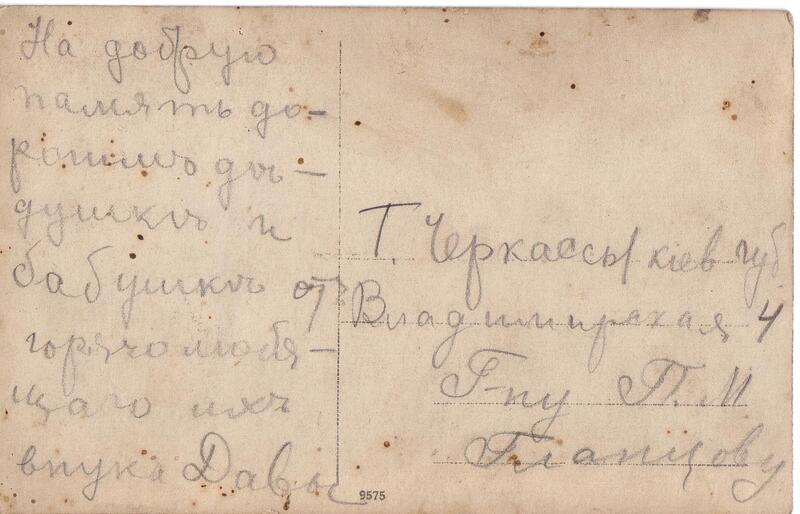 На добрую
память до-
рогимъ дѣ-
душкѣ и
бабушкѣ отъ
горячо любя-
щаго ихъ
внука Давы
Г. Черкассы кіев губ
Владимирская 4
Г-ну П. М
Гланцову
9575